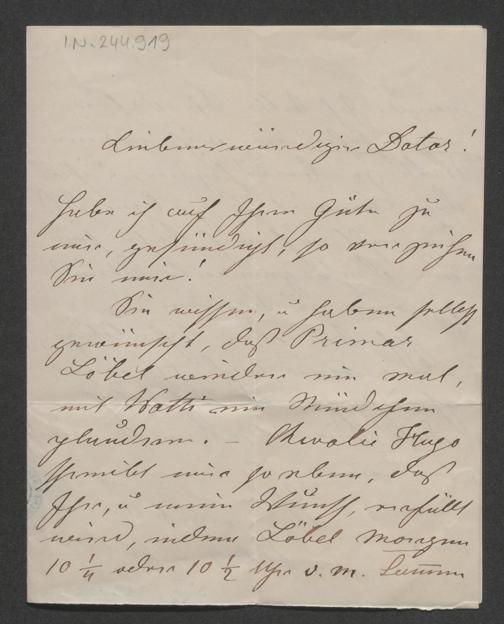 I.N. 244.919
Liebenswürdiger Doctor!
Habe ich auf Ihre Güte zu
mir, gesündigt, so verzeihen
Sie mir!
Sie wissen, u haben selbst
gewünscht, daß Primar
Löbel wieder ein mal,
mit Watti ein Stündchen
plaudern. – Hugo
schreibt mir so eben, daß
Ihr, u mein Wunsch, erfüllt
wird, indem Löbel morgen
10 1/4 oder 10 1/2 Uhr v. m.